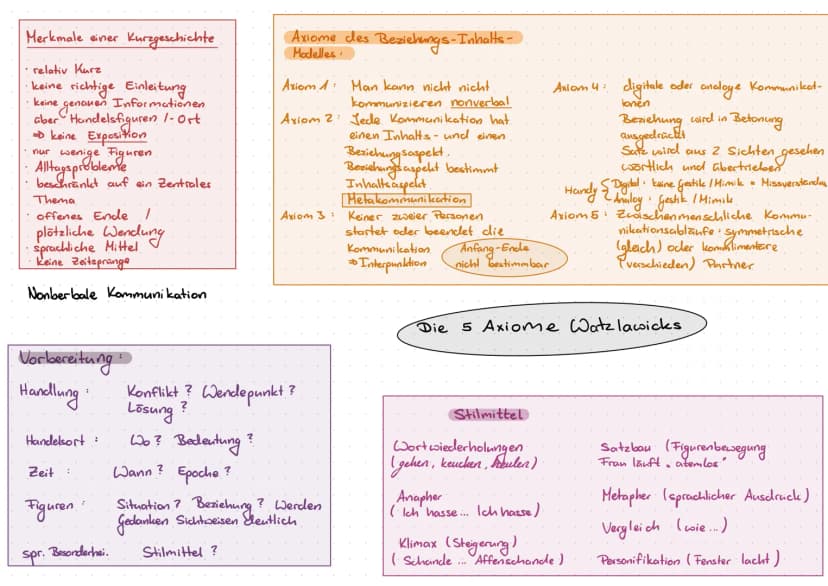 Merkmale einer Kurzgeschichte
· relativ Kurz
· keine richtige Einleitung
· keine genauen Informationen
über Handelsfiguren /-Ort
⇒ keine Exposition
· nur wenige Figuren
· Alltagsprobleme
· beschränkt auf ein Zentrales
Thema
· offenes Ende /
plötzliche Wendung
· sprachliche Mittel
· keine Zeitsprünge
Nonberbale Kommunikation
Axiome des Beziehungs-Inhalts-
Modelles:
Axiom 1: Man kann nicht nicht
kommunizieren nonverbal
Axiom 2: Jede Kommunikation hat
einen Inhalts- und einen
Beziehungsaspekt.
Beziehungsaspekt bestimmt
Inhaltsaspekt
Metakommunikation
Axiom 3: Keiner zweier Personen
startet oder beendet die
Kommunikation
⇒ Interpunktion
Anfang-Ende
nicht bestimmbar
Axiom 4: digitale oder analoge Kommunikat-
ionen
Beziehung wird in Betonung
ausgedrückt
Satz wird aus 2 Sichten gesehen
wörtlich und übertrieben
Handy { Digital: keine Gestik / Mimik = Missverständnis
Analog: Gestik / Mimik
Axiom 5: Zwischenmenschliche Kommu-
nikationsabläufe: symmetrische
(gleich) oder komplimentäre
(verschieden) Partner
Die 5 Axiome Watzlawicks
Vorbereitung:
Handlung: Konflikt? Wendepunkt?
Lösung?
Handelsort: Wo? Bedeutung?
Zeit: Wann? Epoche?
Figuren: Situation? Beziehung? Werden
Gedanken Sichtweisen deutlich
spr. Besonderhei. Stilmittel?
Stilmittel
Wortwiederholungen
(gehen, keuchen, heulen)
Anapher
(Ich hasse... Ich hasse)
Klimax (Steigerung)
(Schande ... Affenschande)
Satzbau (Figurenbewegung
Frau läuft „atemlos"
Metapher (sprachlicher Ausdruck)
Vergleich (wie...)
Personifikation (Fenster lacht)